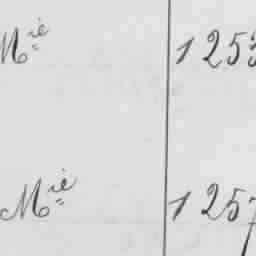 Mie 1253
Mie 1257